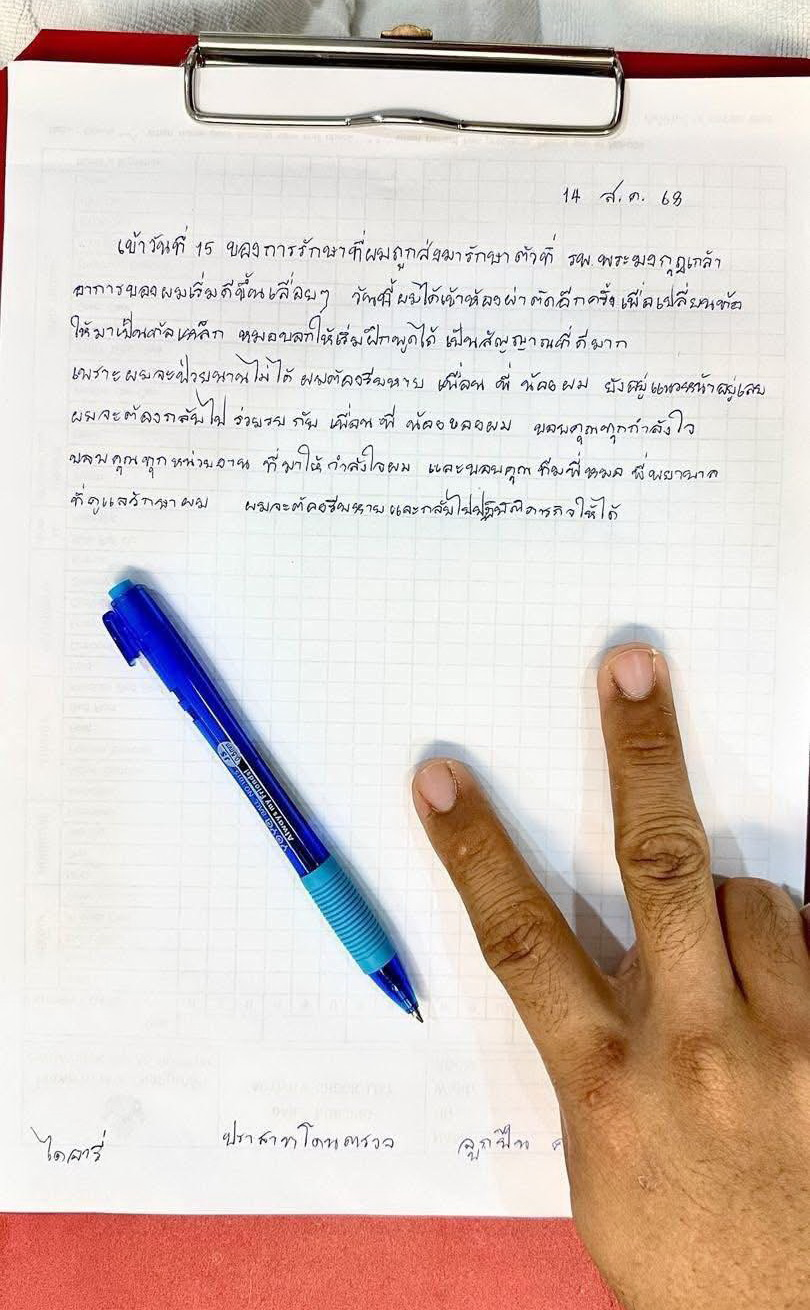 14 ส.ค. 68
เข้าวันที่ 15 ของการรักษาที่ผมถูกส่งมารักษาตัวที่ รพ.พระมงกุฎเกล้า
อาการของผมเริ่มดีขึ้นเลื่อยๆ วันนี้ผมได้เข้าห้องผ่าตัดอีกครั้ง เพื่อเปลี่ยนท่อ
ให้มาเป็นท่อเหล็ก หมอบอกให้เริ่มฝึกพูดได้ เป็นสัญญาณที่ดีมาก
เพราะผมจะป่วยนานไม่ได้ ผมต้องรีบหาย เพื่อน พี่ น้อง ผม ยังอยู่แนวหน้าอยู่เลย
ผมจะต้องกลับไป ร่วมรบ กับ เพื่อน พี่ น้องของผม ขอบคุณทุกกำลังใจ
ขอบคุณทุกหน่วยงาน ที่มาให้กำลังใจผม และขอบคุณ ทีมพี่หมอ พี่พยาบาล
ที่ดูแลรักษาผม ผมจะต้องรีบหายและกลับไปปฏิบัติภารกิจให้ได้
Always my Friends!
ไดอารี่ ปราสาทโดนตรวล ลูกปืน